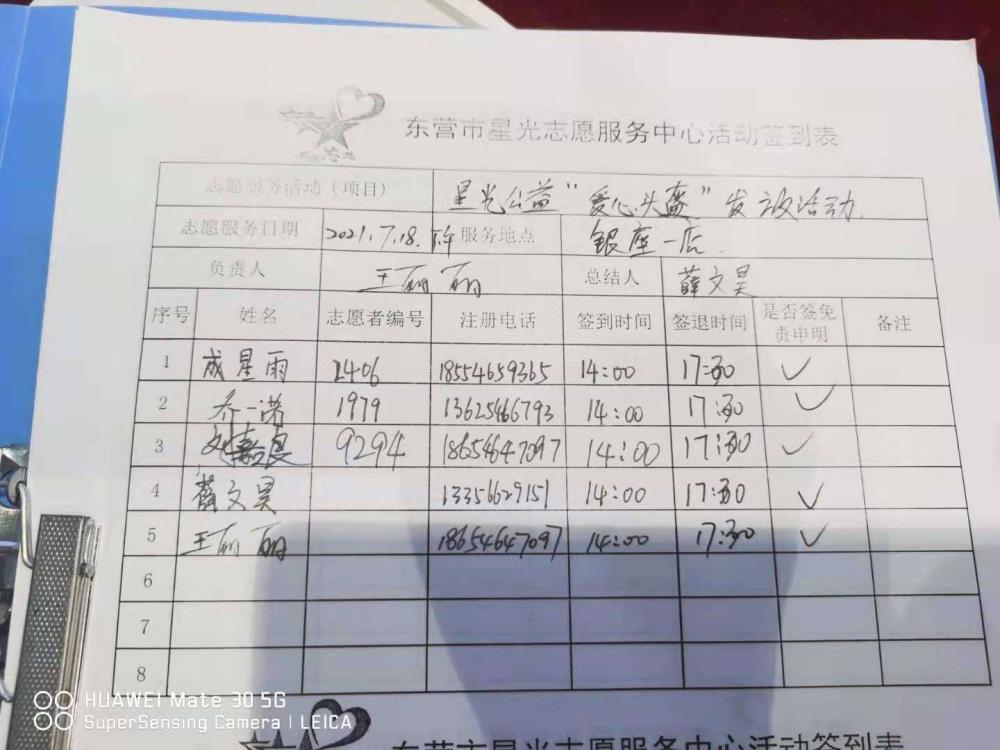 东营市星光志愿服务中心活动签到表
志愿服务活动（项目） 星光公益“爱心头盔”发放活动.
志愿服务日期 2021.7.18. 下午 服务地点 银座一店.
负责人 王丽丽 总结人 薛文昊
序号 姓名 志愿者编号 注册电话 签到时间 签退时间 是否签免责申明 备注
1 成星雨 2406 18554659365 14:00 17:30 ✓
2 乔一诺 1979 13625466793 14:00 17:30 ✓
3 刘嘉良 9294 18654647097 14:00 17:30 ✓
4 薛文昊 13356629151 14:00 17:30 ✓
5 王丽丽 18654647097 14:00 17:30 ✓
6
7
8
东营市星光志愿服务中心活动签到表
HUAWEI Mate 30 5G
SuperSensing Camera | LEICA